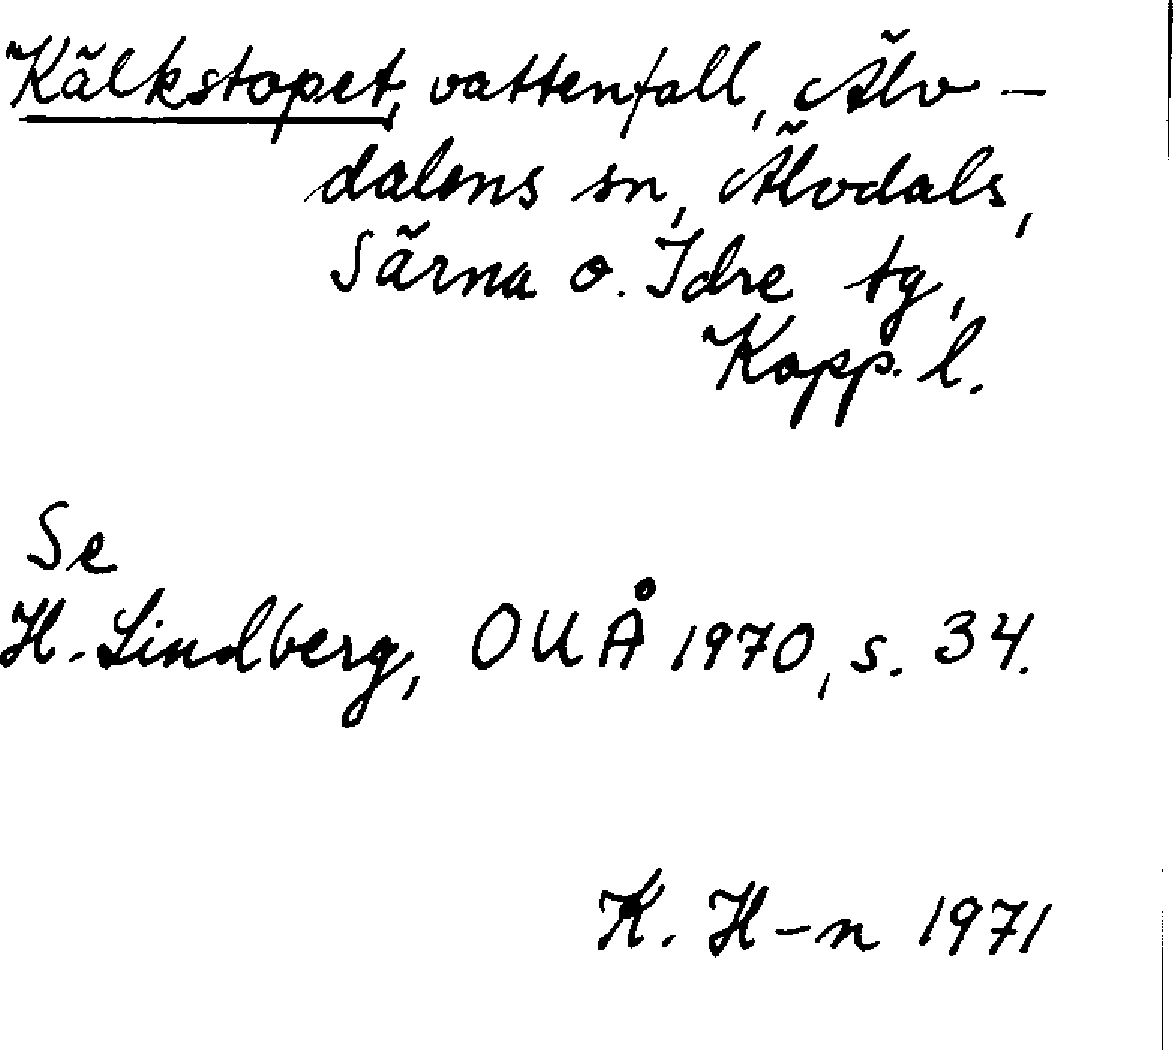 Kälkstopet, vattenfall, Älv-
dalens sn, Älvdals,
Särna o. Idre tg,
Kopp. l.
Se
H. Lindberg, OUÅ 1970, s. 34.
K. H-n 1971